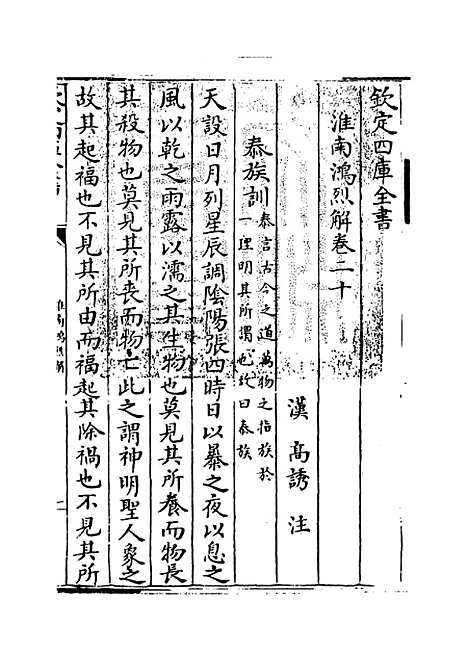 欽定四庫全書
淮南鴻烈解卷二十
漢 高誘 注
泰族訓泰言古今之道萬物之指族於
一理明其所謂也故曰泰族
天設日月列星辰調陰陽張四時日以暴之夜以息之
風以乾之雨露以濡之其生物也莫見其所養而物長
其殺物也莫見其所喪而物亡此之謂神明聖人象之
故其起福也不見其所由而福起其除禍也不見其所
淮南鴻烈解